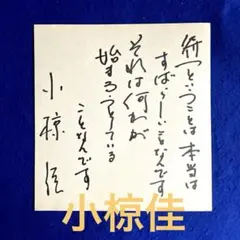 待つということは 本当は
すばらしいことなんです
それは何かが
始まろうとしている
ことなんです
小椋佳
小椋佳